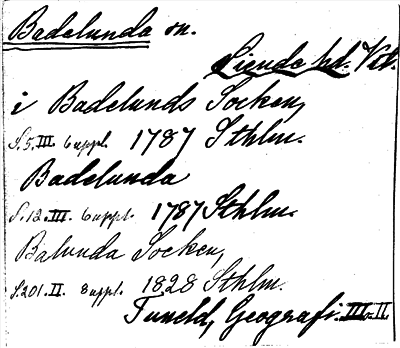 Badelunda sn.
Siende hd. Vstm.
i Badelunds Socken,
S. 5. III. 6 uppl. 1787 Sthlm.
Badelunda
S. 12. III. 6 uppl. 1787 Sthlm.
Balunda Socken,
S. 201. II. 8 uppl. 1828 Sthlm.
Tuneld, Geografi. III o. II.